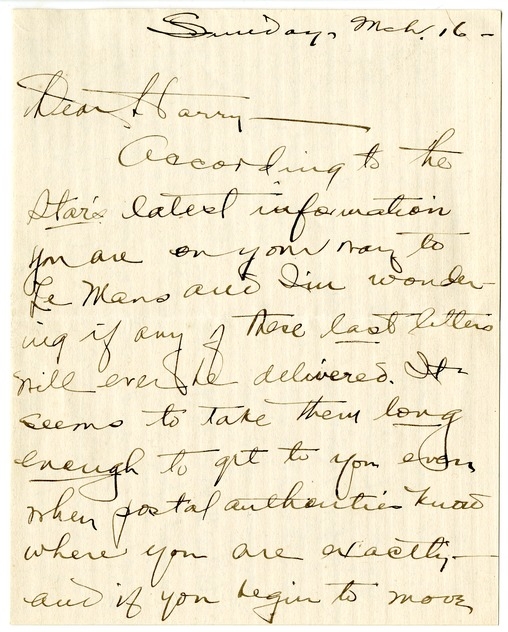 Sunday, Mch. 16 -
Dear Harry —
According to the
Star's latest information
you are on your way to
Le Mans and I'm wonder-
ing if any of these last letters
will ever be delivered. It
seems to take them long
enough to get to you even
when postal authorities know
where you are exactly —
and if you begin to move